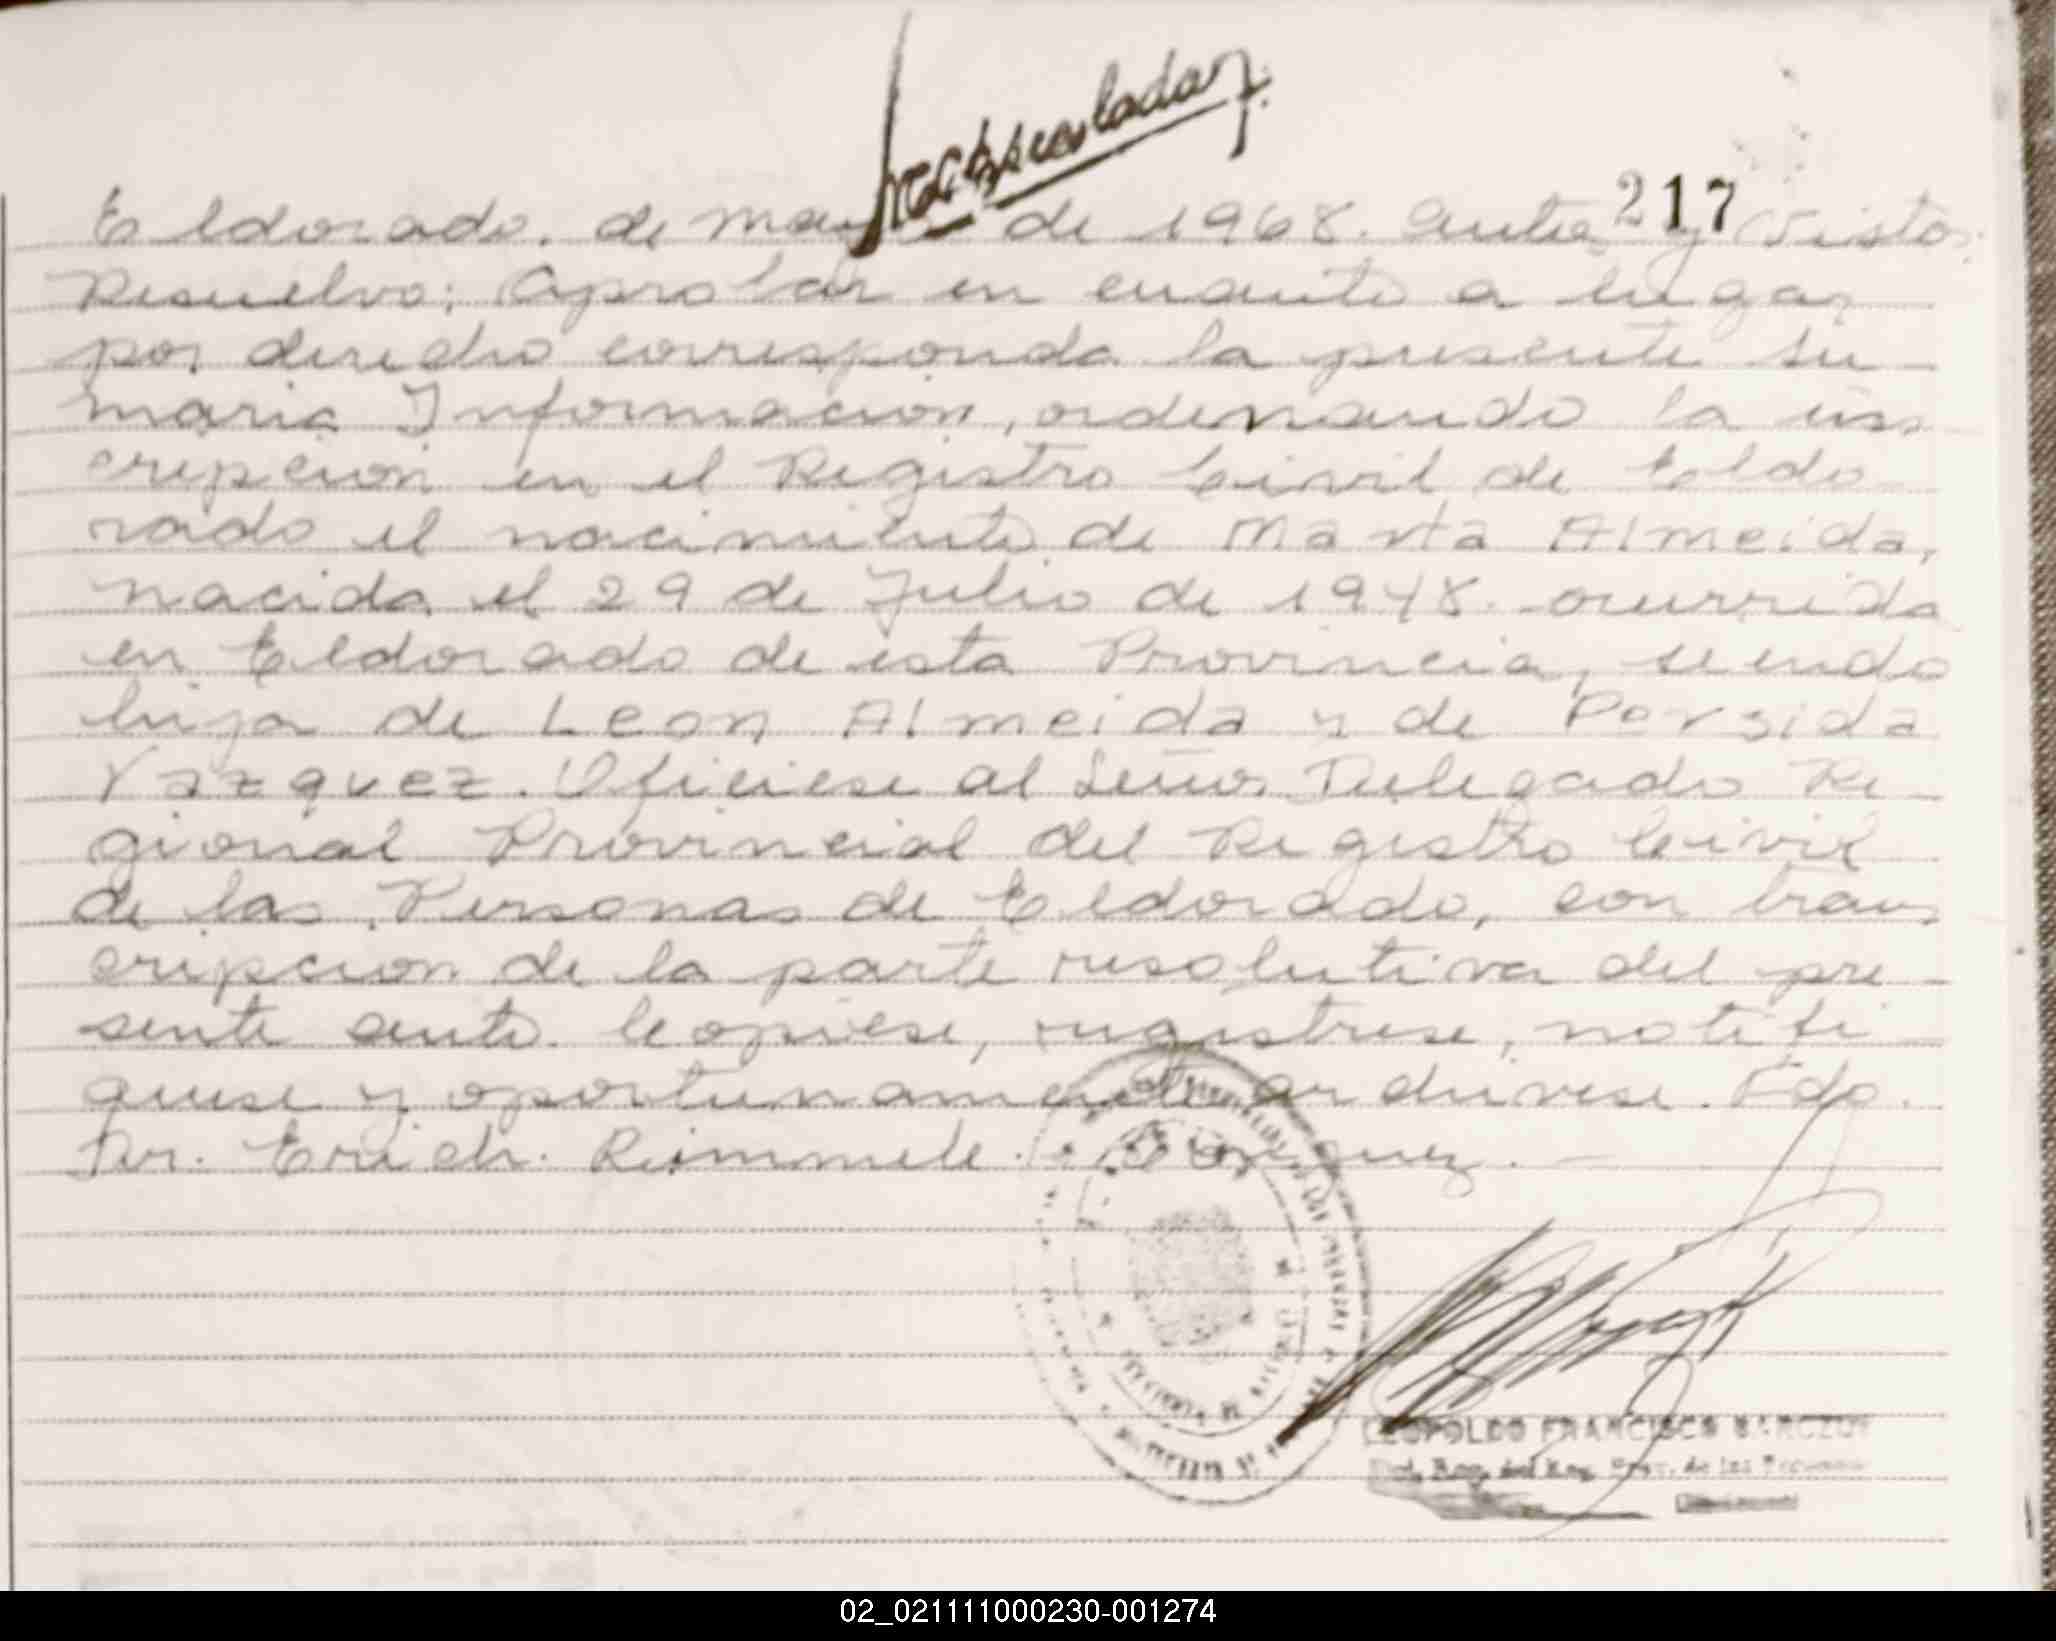 217
Eldorado, de mayo de 1968. Autos y Vistos.
Resuelvo: Aprobar en cuanto a lugar
por derecho corresponda la presente su-
maria Informacion, ordenando la ins-
cripcion en el Registro Civil de Eldo-
rado el nacimiento de Marta Almeida,
nacida el 29 de Julio de 1948. ocurrida
en Eldorado de esta Provincia, siendo
hija de Leon Almeida y de Persida
Vazquez. Oficiese al Señor Delegado Re-
gional Provincial del Registro Civil
de las Personas de Eldorado, con trans
cripcion de la parte resolutiva del pre-
sente auto. Copiese, registrese, notifi-
quese y oportunamente archivese. Fdo.
Dr. Erich. Rimmele.
LEOPOLDO FRANCISCO
02_021111000230-001274